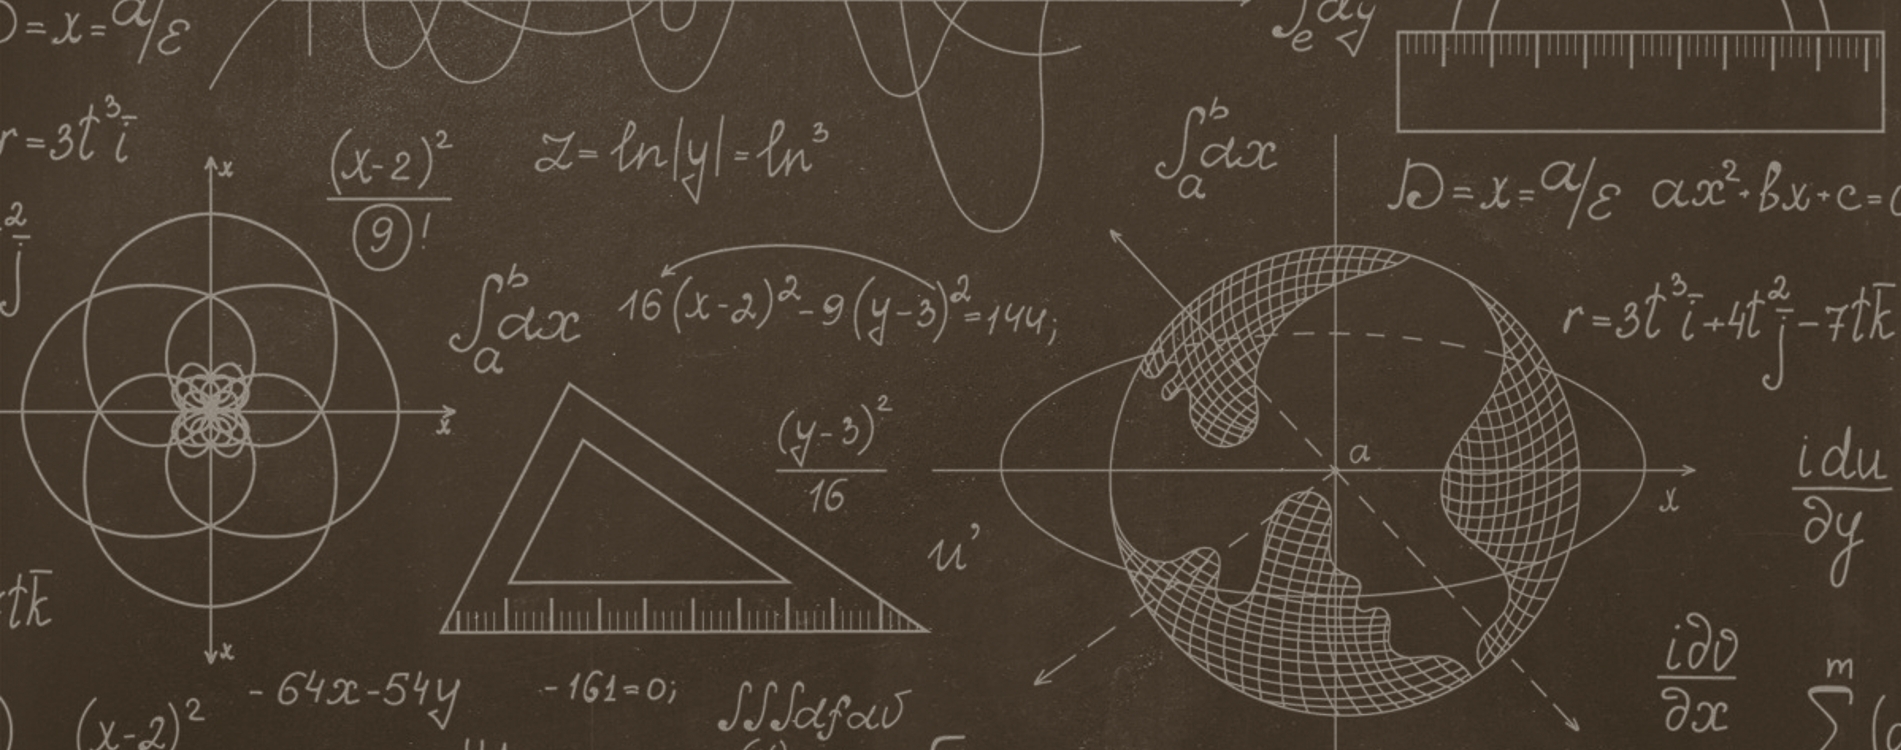 D=x=a/ε
∫ₑ dy
r=3t³i
(x-2)²
9!
z=ln|y|=ln³
∫ₐᵇdx
D=x=a/ε ax²+bx+c=
x
2
j
∫ₐᵇdx
16(x-2)²-9(y-3)²=144;
r=3t³i+4t²j-7tk̅
x
(y-3)²
16
a
x
idu
∂y
u’
tk̅
x
i∂v
∂x
-64x-54y -161=0;
∫∫∫dfdv
(x-2)²
m
∑(